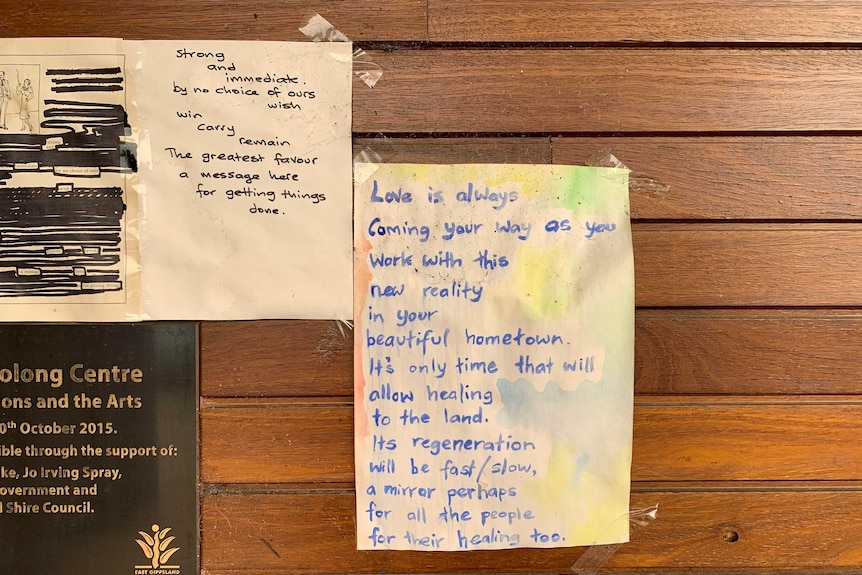 Strong
and
immediate.
by no choice of ours
wish
win
carry
remain
The greatest favour
a message here
for getting things
done.
Love is always
Coming your way as you
work with this
new reality
in your
beautiful hometown.
It's only time that will
allow healing
to the land.
Its regeneration
will be fast/slow,
a mirror perhaps
for all the people
for their healing too.
olong Centre
ons and the Arts
0th October 2015.
ible through the support of:
ke, Jo Irving Spray,
overnment and
Shire Council.
EAST GIPPSLAND